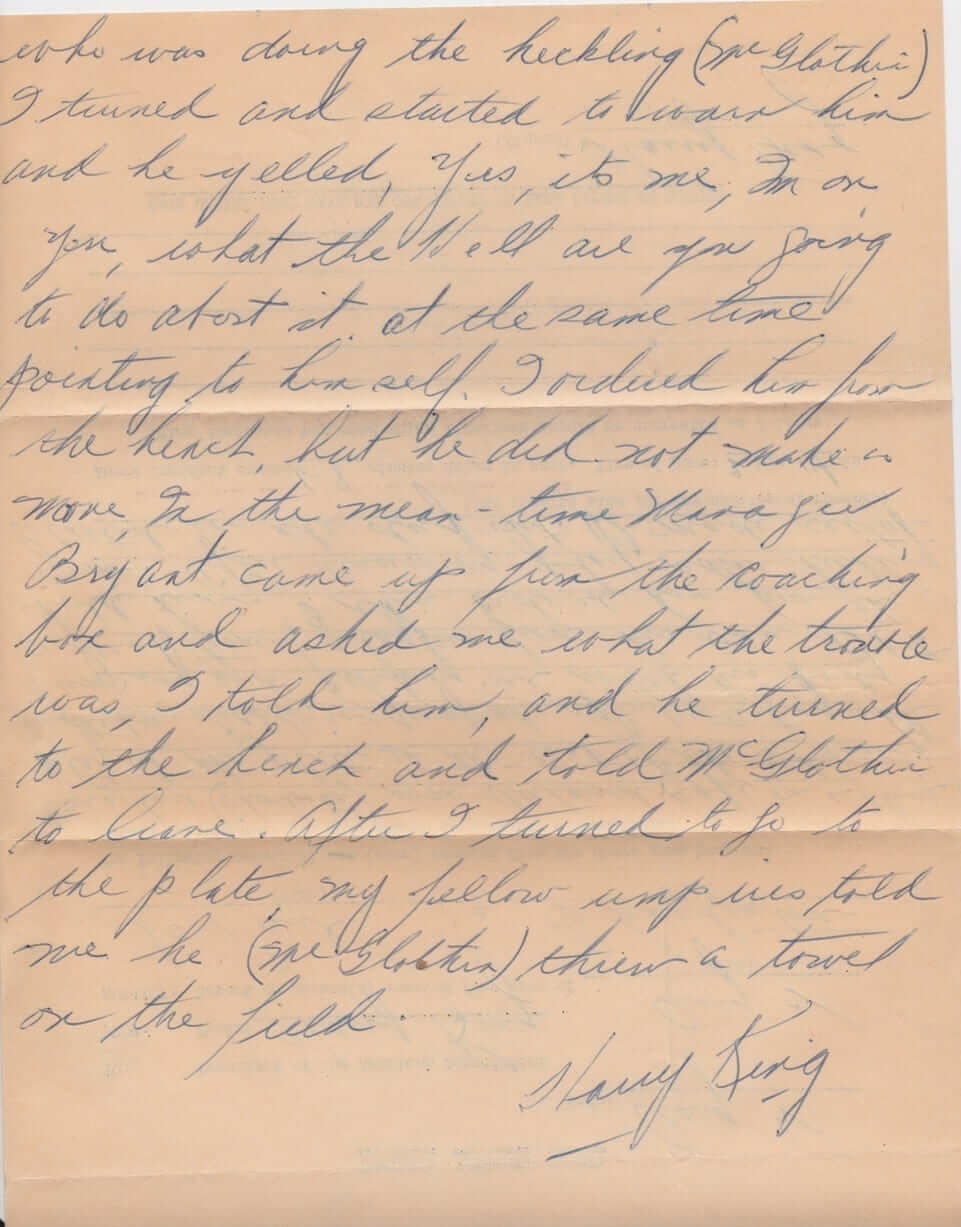 who was doing the heckling (McGlothin)
I turned and started to warn him
and he yelled, Yes, its me, Im on
you, what the Hell are you going
to do about it at the same time
pointing to himself. I ordered him from
the bench, but he did not make a
move, In the mean-time Manager
Bryant came up from the coaching
box and asked me what the trouble
was, I told him, and he turned
to the bench and told McGlothin
to leave. After I turned to go to
the plate, my fellow umpires told
me he (McGlothin) threw a towel
on the field.
Harry King